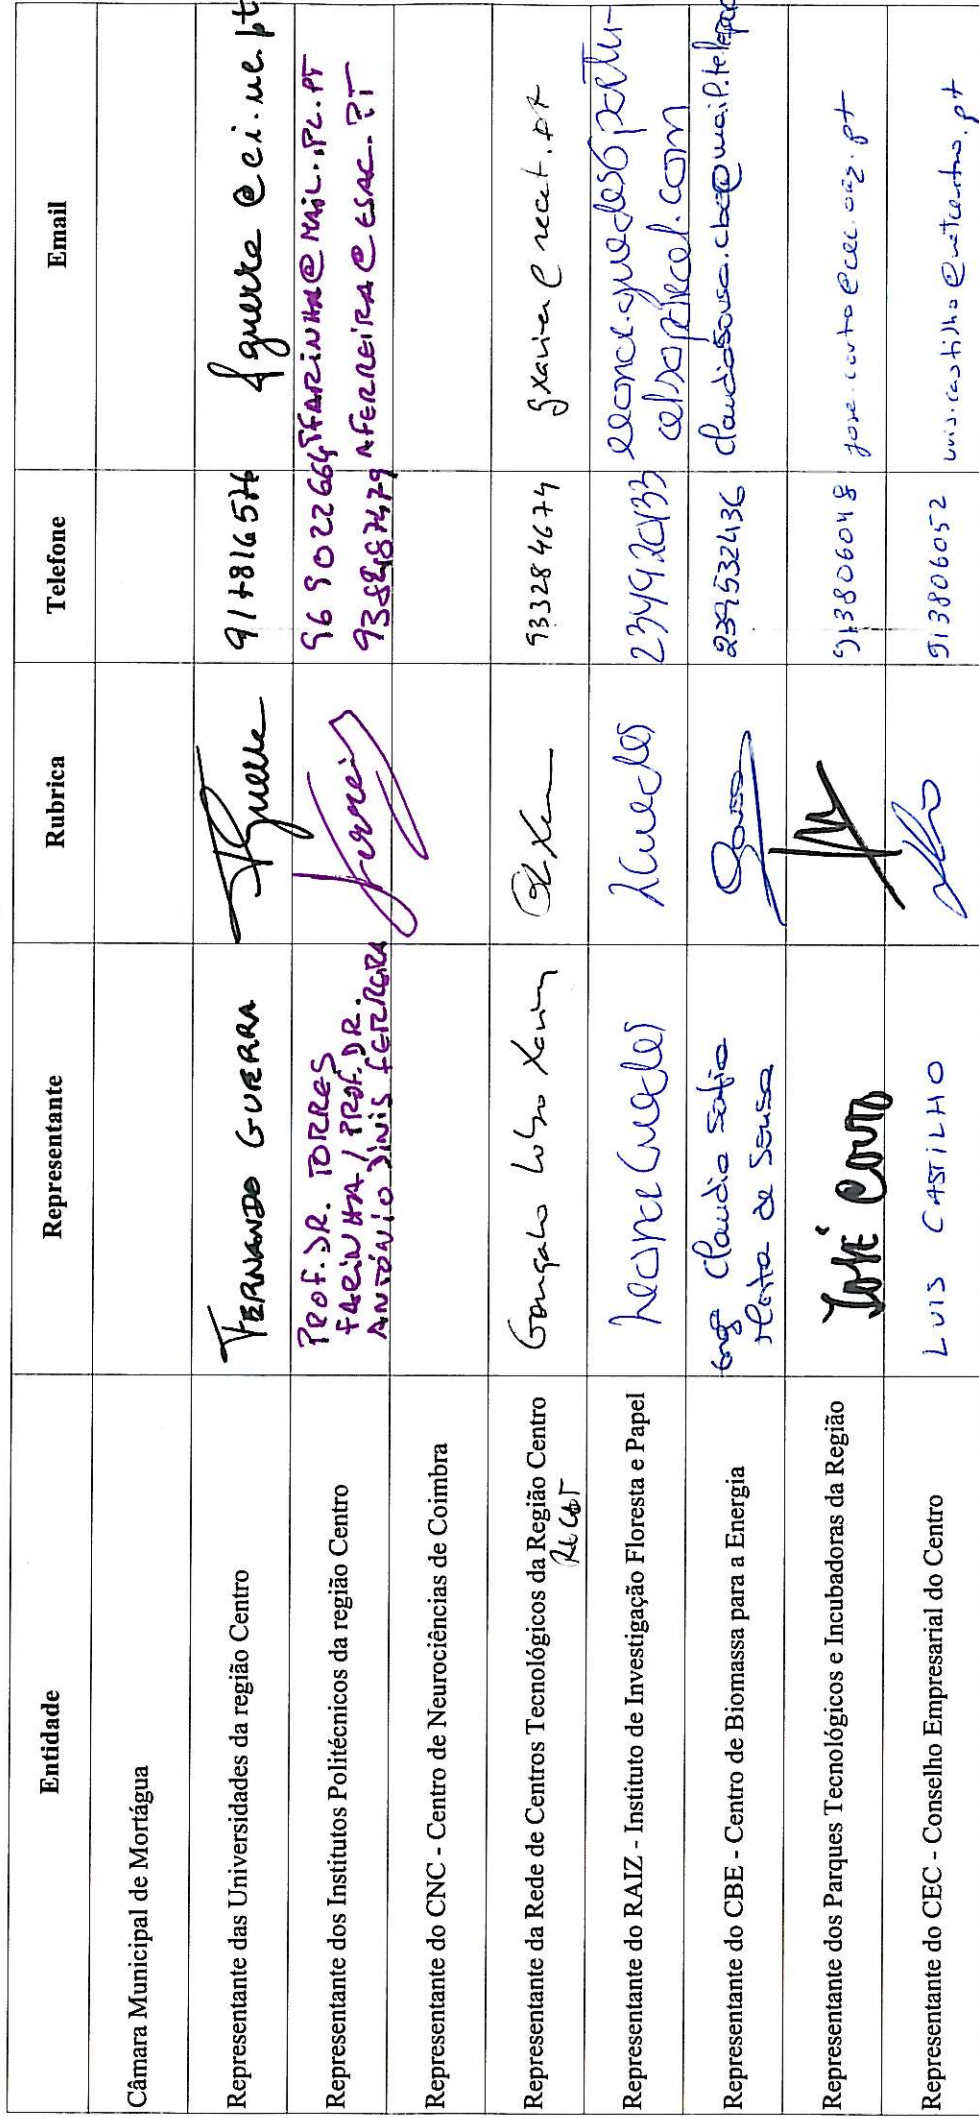 Entidade Representante Rubrica Telefone Email
Câmara Municipal de Mortágua
Representante das Universidades da região Centro FERNANDO GUERRA FGuerra 917816576 fguerra@ci.uc.pt
Representante dos Institutos Politécnicos da região Centro PROF. DR. TORRES 969022664 TFARINHA@MAIL.IPC.PT
FARINHA / PROF. DR. Ferreira AFERREIRA@ESAC.PT
ANTÓNIO DINIS FERREIRA
Representante do CNC - Centro de Neurociências de Coimbra
Representante da Rede de Centros Tecnológicos da Região Centro Gonçalo Lobo Xavier 933284674 gxavier@recet.pt
RECET
Representante do RAIZ - Instituto de Investigação Floresta e Papel Leonor Guedes LGuedes 234920133 leonor.guedes@portu-
celsoporcel.com
Representante do CBE - Centro de Biomassa para a Energia Engª Claudia Sofia 239532436
Marta de Sousa
Representante dos Parques Tecnológicos e Incubadoras da Região JOSÉ COUTO 913806048 jose.couto@cec.org.pt
Representante do CEC - Conselho Empresarial do Centro LUIS CASTILHO 913806052